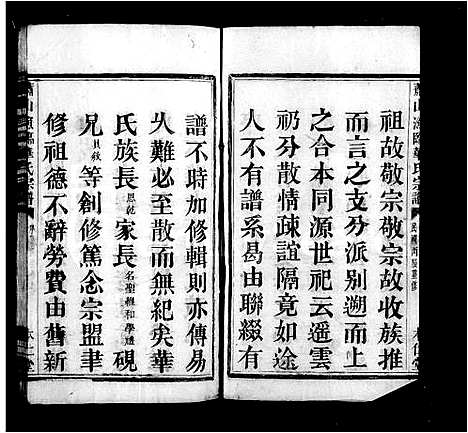 祖故敬宗敬宗故收族推
而言之支分派別遡而上
之合本同源世祀云遥雲
礽分散情疎誼隔竟如途
人不有譜系曷由聯綴有
譜不時加修輯則亦傳易
久難必至散而無紀矣華
氏族長恩乾家長名聖維和學遵硯
兄等創修篤念宗盟聿
修祖德不辭勞費由舊新
蕭山漁臨華氏宗譜